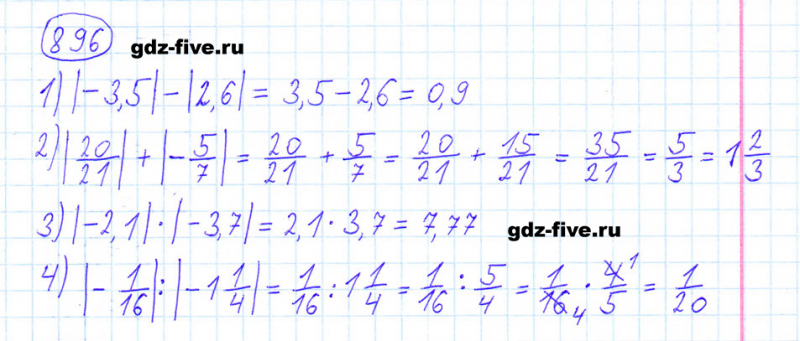 896 gdz-five.ru
1) |-3,5| - |2,6| = 3,5 - 2,6 = 0,9
2) |20/21| + |-5/7| = 20/21 + 5/7 = 20/21 + 15/21 = 35/21 = 5/3 = 1 2/3
3) |-2,1| · |-3,7| = 2,1 · 3,7 = 7,77
gdz-five.ru
4) |-1/16| : |-1 1/4| = 1/16 : 1 1/4 = 1/16 : 5/4 = 1/16 4 · 4 1/5 = 1/20